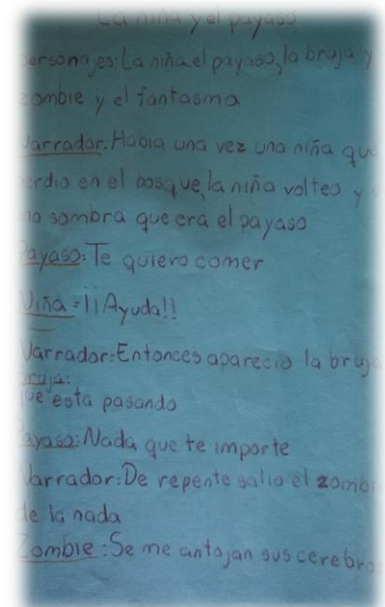 La niña y el payaso
personajes: La niña, el payaso, la bruja y
zombie y el fantasma
Narrador: Habia una vez una niña que
perdio en el bosque, la niña volteo y
una sombra que era el payaso
Payaso: Te quiero comer
Niña: ¡¡Ayuda!!
Narrador: Entonces aparecio la bruja
bruja:
que esta pasando
Payaso: Nada que te importe
Narrador: De repente salio el zombi
de la nada
Zombie: Se me antojan sus cerebro